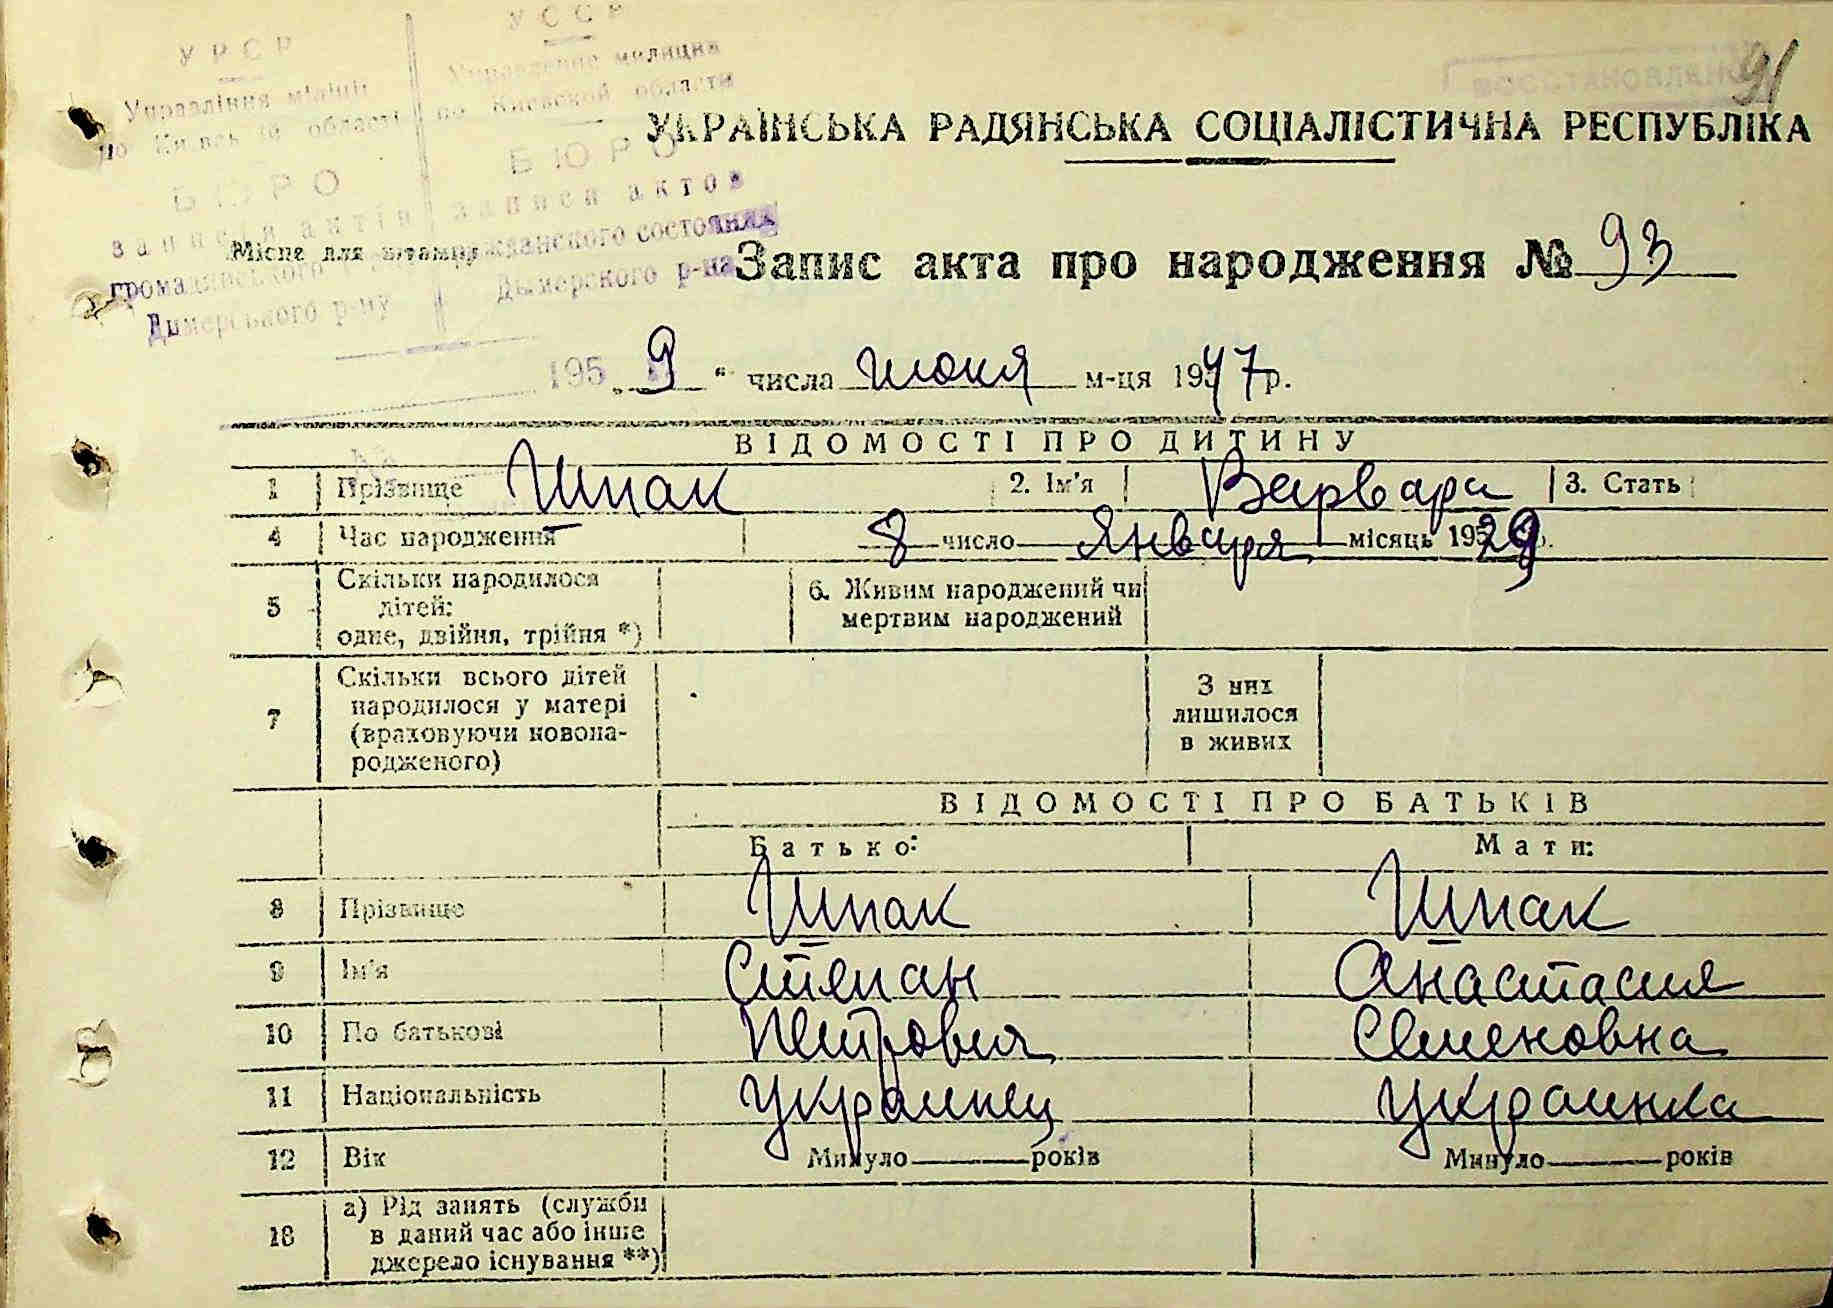 У Р С Р
Управління міліції
по Київській області
Б Ю Р О
записів актів
громадянського
Димерського р-ну
У С С Р
Управление милиции
по Киевской области
Б Ю Р О
записи актов
гражданского состояния
Дымерского р-на
195
ВОССТАНОВЛЕНО
91
УКРАЇНСЬКА РАДЯНСЬКА СОЦІАЛІСТИЧНА РЕСПУБЛІКА
Місце для штампу
Запис акта про народження № 93
„ 9 “ числа июня м-ця 1947 р.
ВІДОМОСТІ ПРО ДИТИНУ
1 Прізвище Шпак 2. Ім'я Варвара 3. Стать
4 Час народження 8 число Января місяць 1929 р.
5 Скільки народилося дітей: одне, двійня, трійня *) 6. Живим народжений чи мертвим народжений
7 Скільки всього дітей народилося у матері (враховуючи новонародженого) З них лишилося в живих
ВІДОМОСТІ ПРО БАТЬКІВ
Батько: Мати:
8 Прізвище Шпак Шпак
9 Ім'я Степан Анастасия
10 По батькові Петрович Семеновна
11 Національність Украинец Украинка
12 Вік Минуло років Минуло років
13 а) Рід занять (служби в даний час або інше джерело існування **)